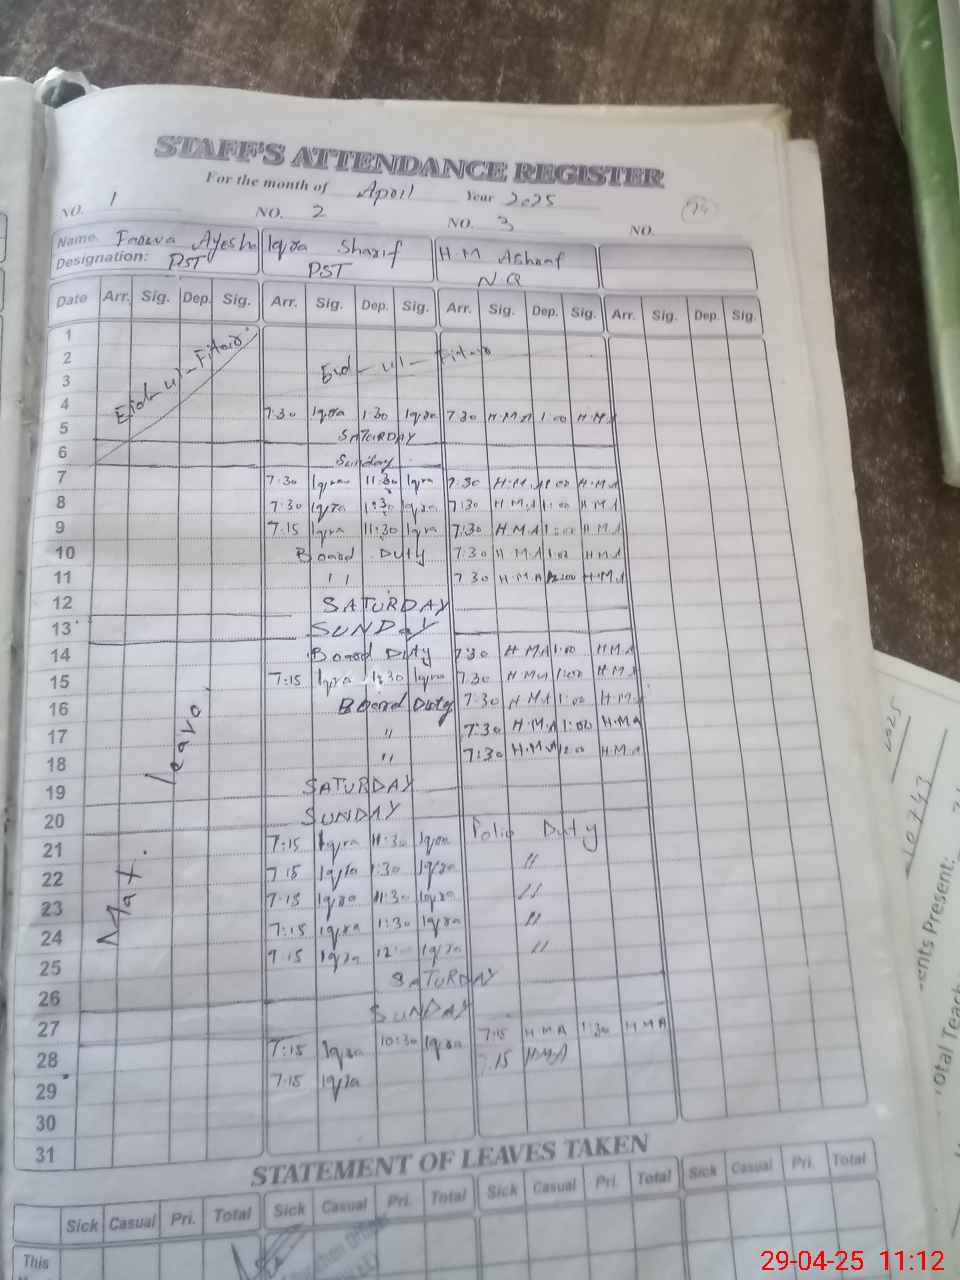 STAFF'S ATTENDANCE REGISTER
For the month of April Year 2025
NO. 1 NO. 2 NO. 3 NO.
Name. Ayesha Iqra Sharif H.M Ashraf
Designation: PST PST N.Q
Date Arr. Sig. Dep. Sig. Arr. Sig. Dep. Sig. Arr. Sig. Dep. Sig. Arr. Sig. Dep. Sig.
1
2 Eid-ul-Fitar Eid-ul-Fitar
3
4 7:30 Iqra 1:30 Iqra 7:30 H.M.A 1:00 H.M.A
5 SATURDAY
6 Sunday
7 7:30 Iqra 11:30 Iqra 7:30 H.M.A 1:00 H.M.A
8 7:30 Iqra 1:30 Iqra 7:30 H.M.A 1:00 H.M.A
9 7:15 Iqra 11:30 Iqra 7:30 H.M.A 1:00 H.M.A
10 Board Duty 7:30 H.M.A 1:00 H.M.A
11 " 7:30 H.M.A H.M.A
12 SATURDAY
13 SUNDAY
14 Board Duty 7:30 H.M.A 1:00 H.M.A
15 7:15 Iqra 1:30 Iqra 7:30 H.M.A 1:00 H.M.A
16 Board Duty 7:30 H.M.A 1:00 H.M.A
17 " 7:30 H.M.A 1:00 H.M.A
18 " 7:30 H.M.A H.M.A
19 SATURDAY
20 SUNDAY
21 7:15 Iqra 11:30 Iqra Polio Duty
22 7:15 Iqra 1:30 Iqra "
23 7:15 Iqra 11:30 Iqra "
24 7:15 Iqra 1:30 Iqra "
25 7:15 Iqra 12 Iqra "
26 SATURDAY
27 SUNDAY
28 7:15 Iqra 10:30 Iqra 7:15 H.M.A 1:30 H.M.A
29 7:15 Iqra 7:15 H.M.A
30
31
Mat. leave
STATEMENT OF LEAVES TAKEN
Sick Casual Pri. Total Sick Casual Pri. Total Sick Casual Pri. Total Sick Casual Pri. Total
This
2025
10743
ents Present:
otal Teach
29-04-25 11:12